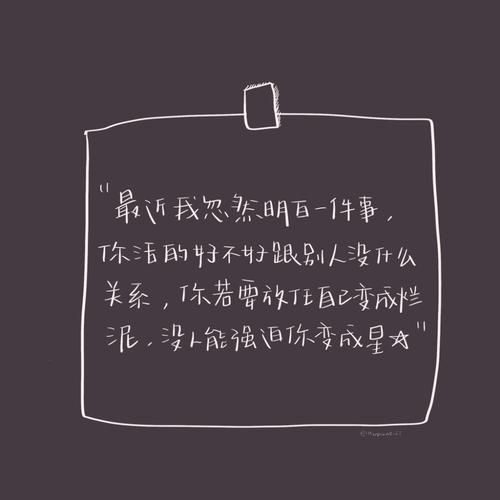 "最近我忽然明白一件事，
你活的好不好跟别人没什么
关系，你若要放任自己变成烂
泥，没人能强迫你变成星☆"